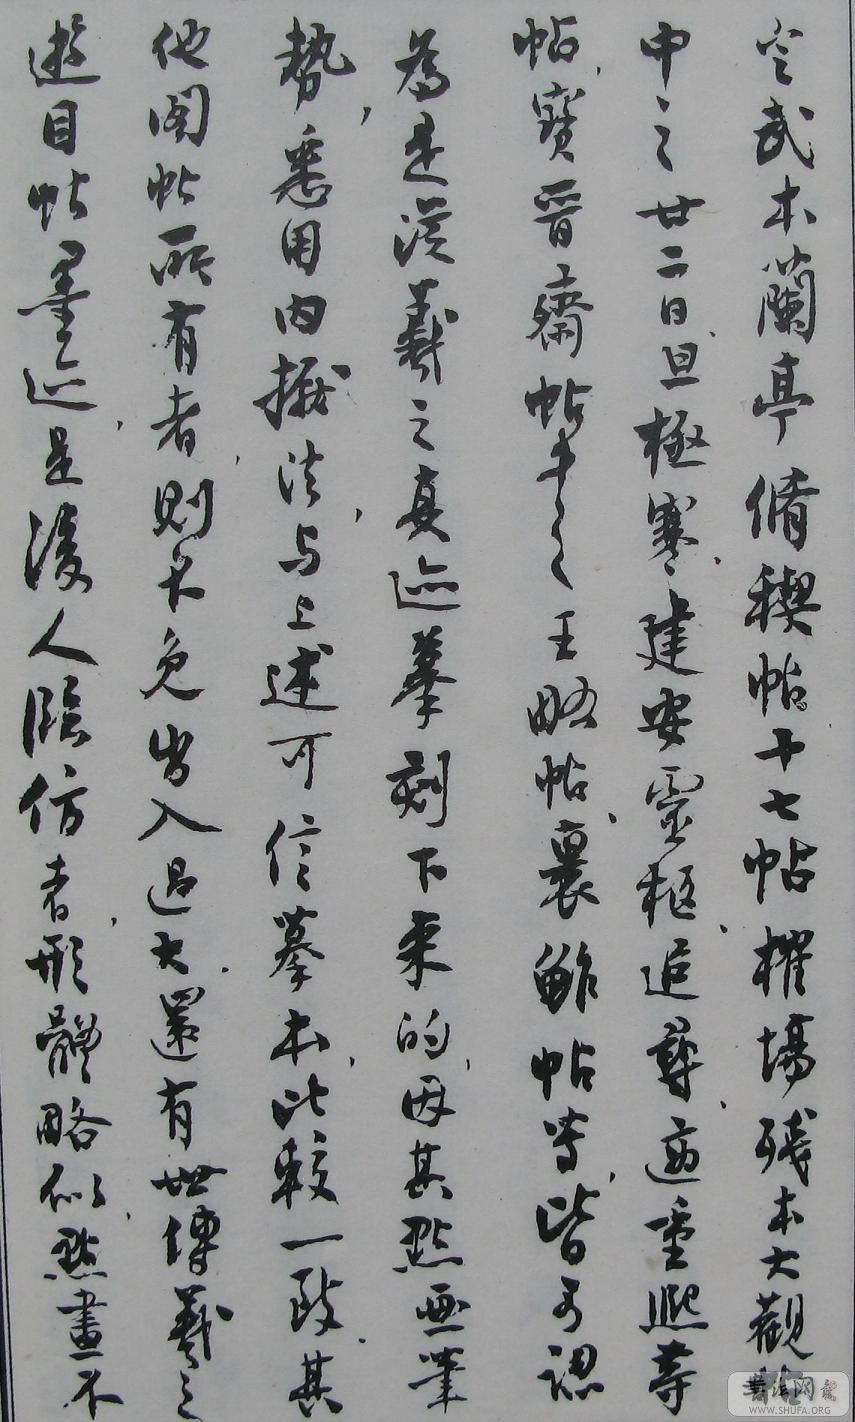 定武本蘭亭脩禊帖十七帖榷場殘本大觀帖
中之廿二日旦極寒建安靈柩追尋適重熙等
帖寶晉齋帖中之王略帖裹鮓帖等皆可認
為是從羲之真迹摹刻下來的因其點画筆
勢悉用内擫法与上述可信摹本比較一致其
他閣帖所有者則不免出入過大還有世傳羲之
遊目帖墨迹是後人臨仿者形體略似點畫不
書法网
WWW.SHUFA.ORG